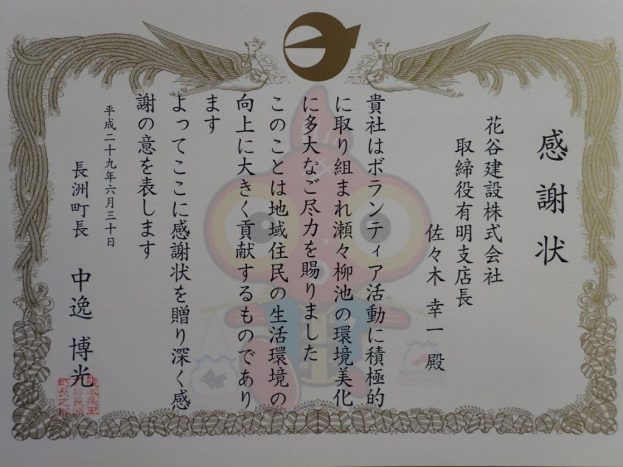 感謝状
花谷建設株式会社
取締役有明支店長
佐々木 幸一 殿
貴社はボランティア活動に積極的
に取り組まれ瀬々柳池の環境美化
に多大なご尽力を賜りました
このことは地域住民の生活環境の
向上に大きく貢献するものであり
ます
よってここに感謝状を贈り深く感
謝の意を表します
平成二十九年六月三十日
長洲町長 中逸 博光